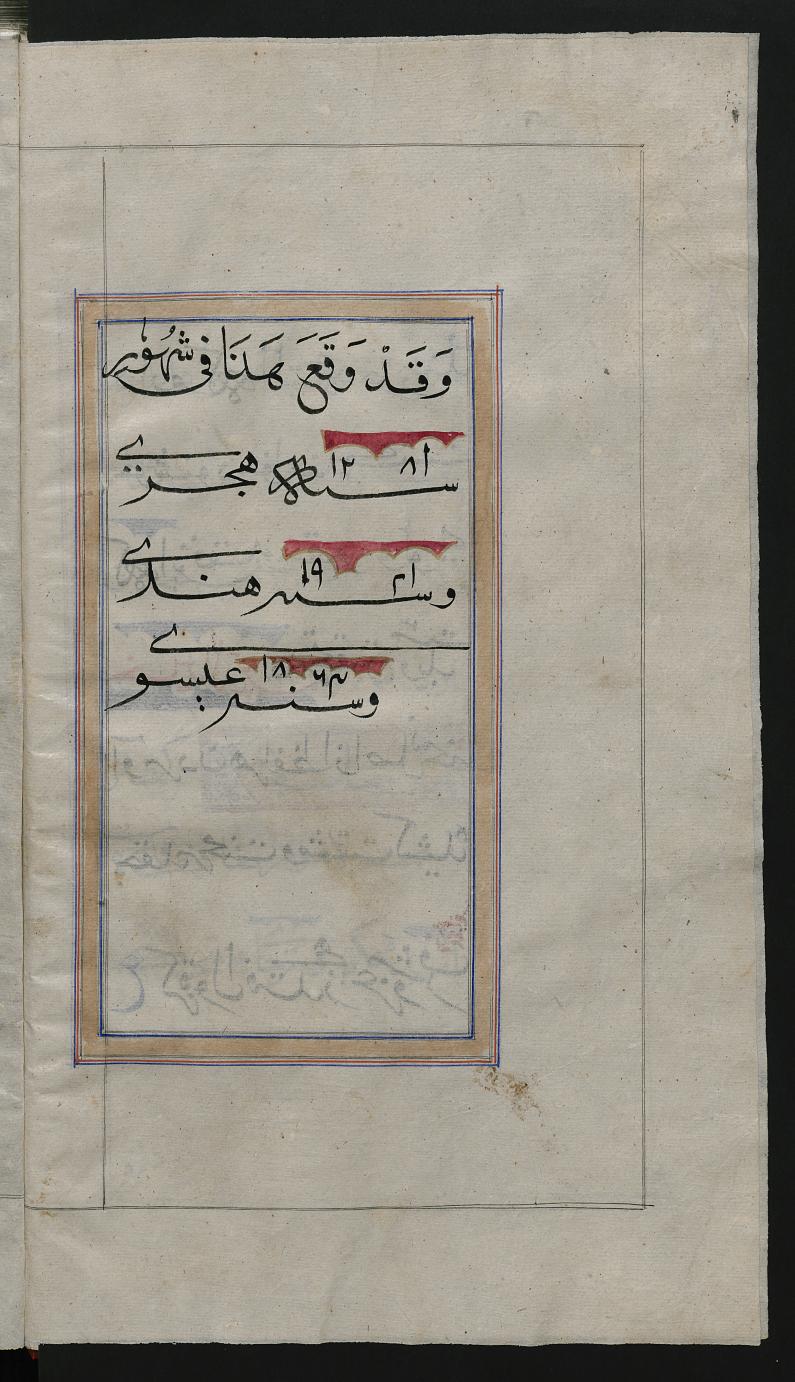 وَقَدْ وَقَعَ هَذَا فى شُهُور
سنه ۱۲۸۱ هجرى
وسنه ۱۹۲۱ هندى
وسنه ۱۸۶۴ عيسوى